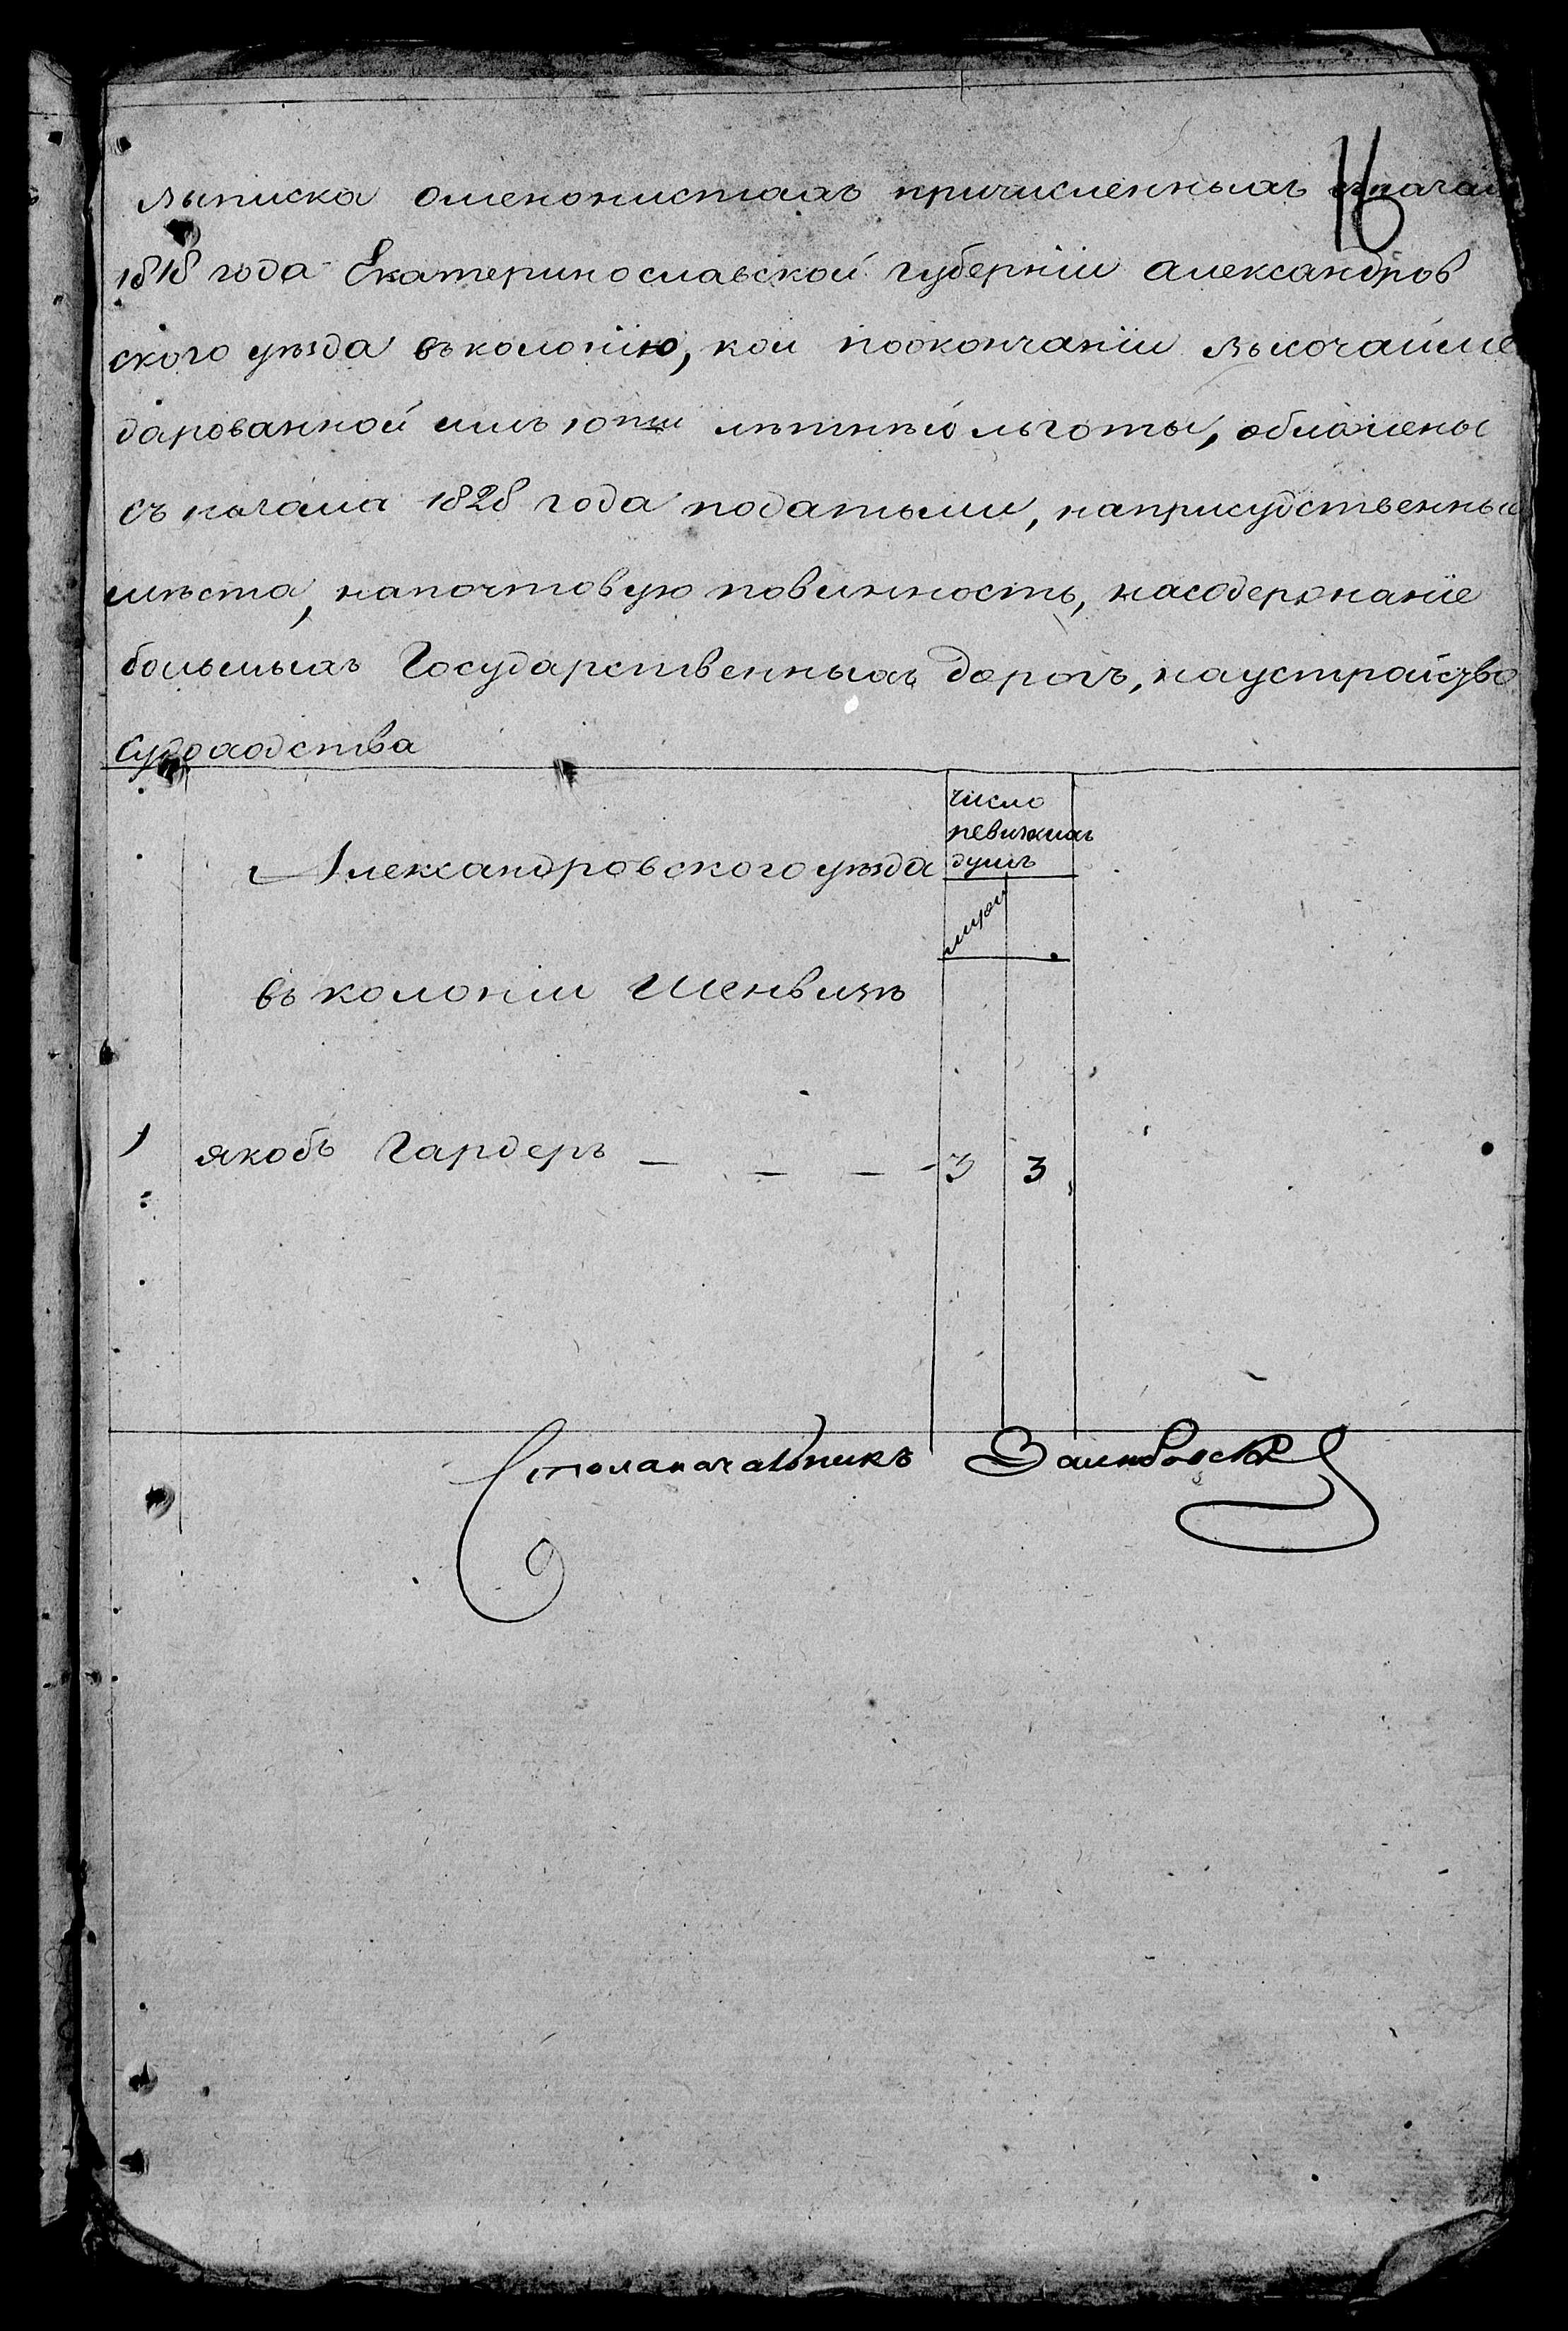 16
Выписка оменонистахъ причисленныхъ сначал
1818 года Екатеринославской губерніи Александров
ского уѣзда въколонію, кои поокончаніи высочайше
дарованной имъ 10ти лѣтнѣй льготы, обложены
съ начала 1828 года податьми, наприсудственныя
мѣста, напочтовую повинность, насодержаніе
большихъ Государственныхъ дорогъ, наустройство
судоходства
число
ревижкихъ
душъ
Александровского уѣзда
въ колоніи Шенвизъ
1 якобъ Гардеръ — — — - 3 3
Столаначальникъ